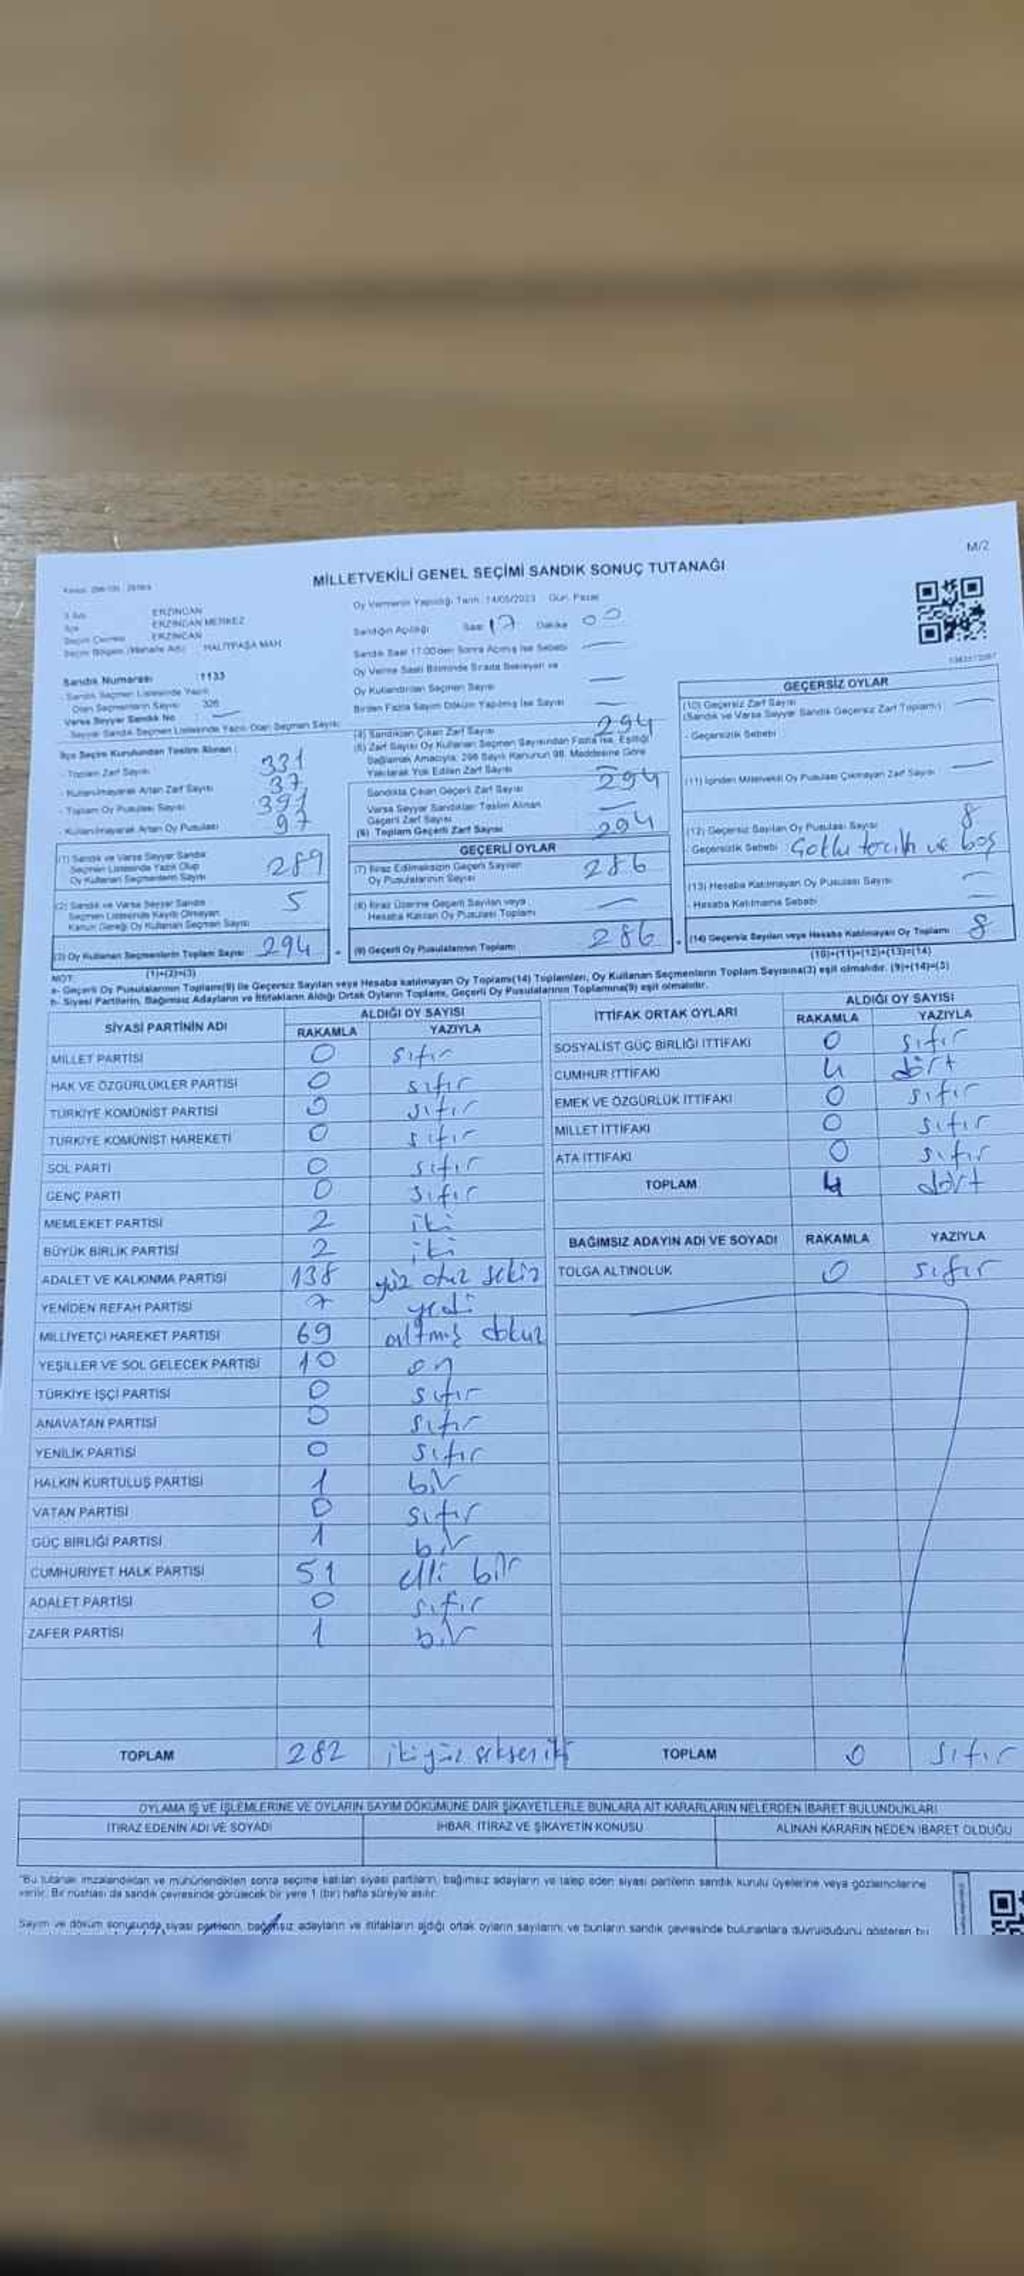 M/2
MİLLETVEKİLİ GENEL SEÇİMİ SANDIK SONUÇ TUTANAĞI
ERZİNCAN
ERZİNCAN MERKEZ
ERZİNCAN
HALİTPAŞA MAH
Oy Vermenin Yapıldığı Tarih: 14/05/2023 Gün: Pazar
Sandığın Açıldığı Saat 17 Dakika 00
Sandık Saat 17:00'den Sonra Açılmış İse Sebebi
Oy Verme Saati Bitiminde Sırada Bekleyen ve
Oy Kullandırılan Seçmen Sayısı
Birden Fazla Sayım Döküm Yapılmış İse Sayısı
Sandık Numarası :1133
Sandık Seçmen Listesinde Yazılı
Olan Seçmenlerin Sayısı 326
Varsa Seyyar Sandık No
Seyyar Sandık Seçmen Listesinde Yazılı Olan Seçmen Sayısı
İlçe Seçim Kurulundan Teslim Alınan :
- Toplam Zarf Sayısı 331
- Kullanılmayarak Artan Zarf Sayısı 37
- Toplam Oy Pusulası Sayısı 391
- Kullanılmayarak Artan Oy Pusulası 97
(1) Sandık ve Varsa Seyyar Sandık
Seçmen Listesinde Yazılı Olup
Oy Kullanan Seçmenlerin Sayısı 289
(2) Sandık ve Varsa Seyyar Sandık
Seçmen Listesinde Kayıtlı Olmayan
Kanun Gereği Oy Kullanan Seçmen Sayısı 5
(3) Oy Kullanan Seçmenlerin Toplam Sayısı 294
(1)+(2)=(3)
(4) Sandıktan Çıkan Zarf Sayısı 294
(5) Zarf Sayısı Oy Kullanan Seçmen Sayısından Fazla İse, Eşitliği
Sağlamak Amacıyla; 298 Sayılı Kanunun 98. Maddesine Göre
Yakılarak Yok Edilen Zarf Sayısı
Sandıkta Çıkan Geçerli Zarf Sayısı 294
Varsa Seyyar Sandıktan Teslim Alınan
Geçerli Zarf Sayısı
(6) Toplam Geçerli Zarf Sayısı 294
GEÇERLİ OYLAR
(7) İtiraz Edilmeksizin Geçerli Sayılan
Oy Pusulalarının Sayısı 286
(8) İtiraz Üzerine Geçerli Sayılan veya
Hesaba Katılan Oy Pusulası Toplamı
(9) Geçerli Oy Pusulalarının Toplamı 286
GEÇERSİZ OYLAR
(10) Geçersiz Zarf Sayısı
(Sandık ve Varsa Seyyar Sandık Geçersiz Zarf Toplamı)
- Geçersizlik Sebebi
(11) İçinden Milletvekili Oy Pusulası Çıkmayan Zarf Sayısı
(12) Geçersiz Sayılan Oy Pusulası Sayısı 8
- Geçersizlik Sebebi Çoklu tercih ve boş
(13) Hesaba Katılmayan Oy Pusulası Sayısı
- Hesaba Katılmama Sebebi
(14) Geçersiz Sayılan veya Hesaba Katılmayan Oy Toplamı 8
(10)+(11)+(12)+(13)=(14)
NOT:
a- Geçerli Oy Pusulalarının Toplamı(9) ile Geçersiz Sayılan veya Hesaba katılmayan Oy Toplamı(14) Toplamları, Oy Kullanan Seçmenlerin Toplam Sayısına(3) eşit olmalıdır. (9)+(14)=(3)
b- Siyasi Partilerin, Bağımsız Adayların ve İttifakların Aldığı Ortak Oyların Toplamı, Geçerli Oy Pusulalarının Toplamına(9) eşit olmalıdır.
SİYASİ PARTİNİN ADI ALDIĞI OY SAYISI
RAKAMLA YAZIYLA
MİLLET PARTİSİ 0 sıfır
HAK VE ÖZGÜRLÜKLER PARTİSİ 0 sıfır
TÜRKİYE KOMÜNİST PARTİSİ 0 sıfır
TÜRKİYE KOMÜNİST HAREKETİ 0 sıfır
SOL PARTİ 0 sıfır
GENÇ PARTİ 0 sıfır
MEMLEKET PARTİSİ 2 iki
BÜYÜK BİRLİK PARTİSİ 2 iki
ADALET VE KALKINMA PARTİSİ 138 yüz otuz sekiz
YENİDEN REFAH PARTİSİ 7 yedi
MİLLİYETÇİ HAREKET PARTİSİ 69 altmış dokuz
YEŞİLLER VE SOL GELECEK PARTİSİ 10 on
TÜRKİYE İŞÇİ PARTİSİ 0 sıfır
ANAVATAN PARTİSİ 0 sıfır
YENİLİK PARTİSİ 0 sıfır
HALKIN KURTULUŞ PARTİSİ 1 bir
VATAN PARTİSİ 0 sıfır
GÜÇ BİRLİĞİ PARTİSİ 1 bir
CUMHURİYET HALK PARTİSİ 51 elli bir
ADALET PARTİSİ 0 sıfır
ZAFER PARTİSİ 1 bir
TOPLAM 282 iki yüz seksen iki
İTTİFAK ORTAK OYLARI ALDIĞI OY SAYISI
RAKAMLA YAZIYLA
SOSYALİST GÜÇ BİRLİĞİ İTTİFAKI 0 sıfır
CUMHUR İTTİFAKI 4 dört
EMEK VE ÖZGÜRLÜK İTTİFAKI 0 sıfır
MİLLET İTTİFAKI 0 sıfır
ATA İTTİFAKI 0 sıfır
TOPLAM 4 dört
BAĞIMSIZ ADAYIN ADI VE SOYADI RAKAMLA YAZIYLA
TOLGA ALTINOLUK 0 sıfır
TOPLAM 0 sıfır
OYLAMA İŞ VE İŞLEMLERİNE VE OYLARIN SAYIM DÖKÜMÜNE DAİR ŞİKAYETLERLE BUNLARA AİT KARARLARIN NELERDEN İBARET BULUNDUKLARI
İTİRAZ EDENİN ADI VE SOYADI İHBAR, İTİRAZ VE ŞİKAYETİN KONUSU ALINAN KARARIN NEDEN İBARET OLDUĞU
"Bu tutanak imzalandıktan ve mühürlendikten sonra seçime katılan siyasi partilerin, bağımsız adayların ve talep eden siyasi partilerin sandık kurulu üyelerine veya gözlemcilerine
verilir. Bir nüshası da sandık çevresinde görülecek bir yere 1 (bir) hafta süreyle asılır.
Sayım ve döküm sonucunda siyasi partilerin, bağımsız adayların ve ittifakların aldığı ortak oyların sayılarını ve bunların sandık çevresinde bulunanlara duyrulduğunu gösteren bu